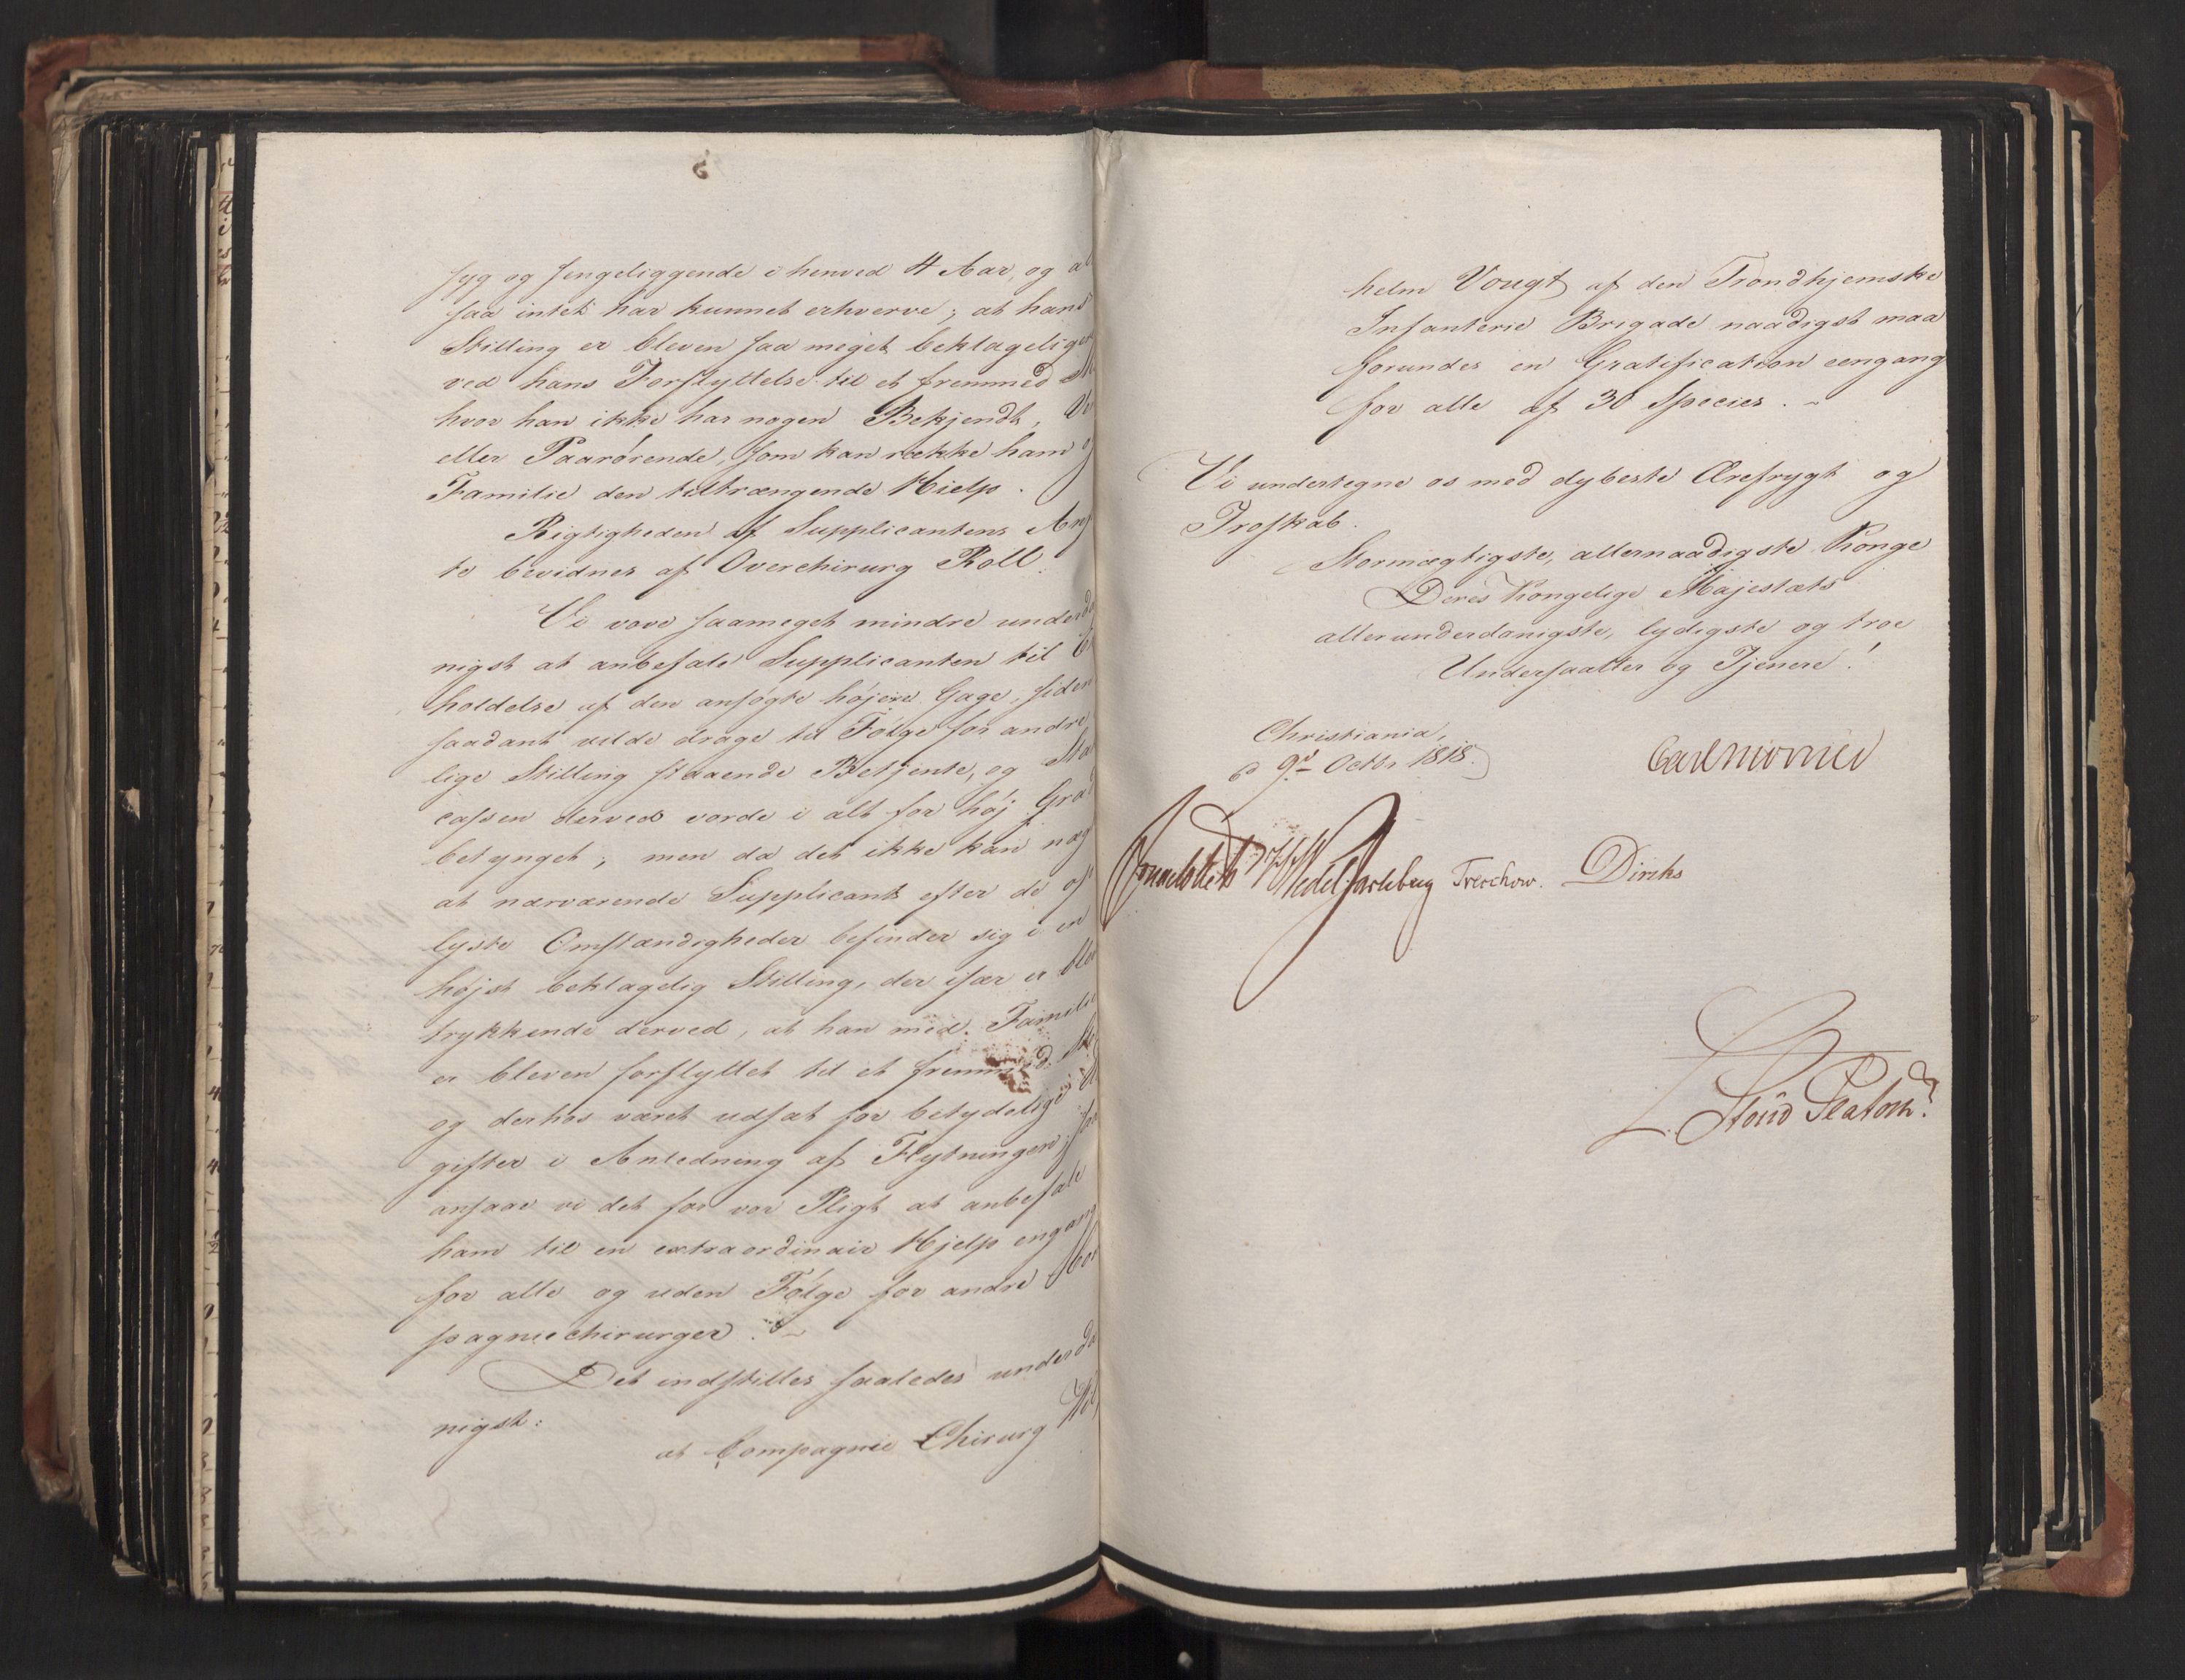 syg og sengeliggende i henved 4 Aar, og al
saa intet har kunnet erhverve; at hans
Stilling er bleven saa meget beklageliger
ved hans Forflyttelse til et fremmed
hvor han ikke har nogen Bekjendt,
eller Paarörende, som kan række ham og
Familie den tiltrængende Hielp.
Rigtigheden af Supplicantens Anf
te bevidnes af Overchirurg Roll.
Vi vove saameget mindre underda
nigst at anbefale Supplicanten til Be
holdelse af den ansögte höjere Gage, siden
saadant vilde drage til Fölge for andre i
lige Stilling staaende Betjente, og Stats
cassen derved vorde i alt for höj Grad
betynget; men da det ikke kan næg
at nærværende Supplicant efter de op
lyste Omstændigheder befinder sig i en
höjst beklagelig Stilling, der især er bleven
trykkende derved, at han med Familie
er bleven forflyttet til et fremmed
og derhos været udsat for betydelige Ud
gifter i Anledning af Flytningen; saa
ansaae vi det for vor Pligt at anbefale
ham til en extraordinair Hjelp engang
for alle og uden Fölge for andre Com
pagniechirurger. ~
Det indstilles saaledes underda
nigst:
at Compagnie Chirurg Wil
helm Vougt af den Trondhjemske
Infanterie Brigade naadigst maa
forundes en Gratification eengang
for alle af 30 Species. ~
Vi undertegne os med dybeste Ærefrygt og
Troskab.
Stormægtigste, allernaadigste Konge
Deres Kongelige Majestæts
allerunderdanigste, lydigste og troe
Undersaatter og Tjenere!
Christiania,
d 9d Octbr 1818.
Carl Mörner
Sommerfeldt Wedel Jarlsberg Treschow. Diriks
L. Stoud Platou